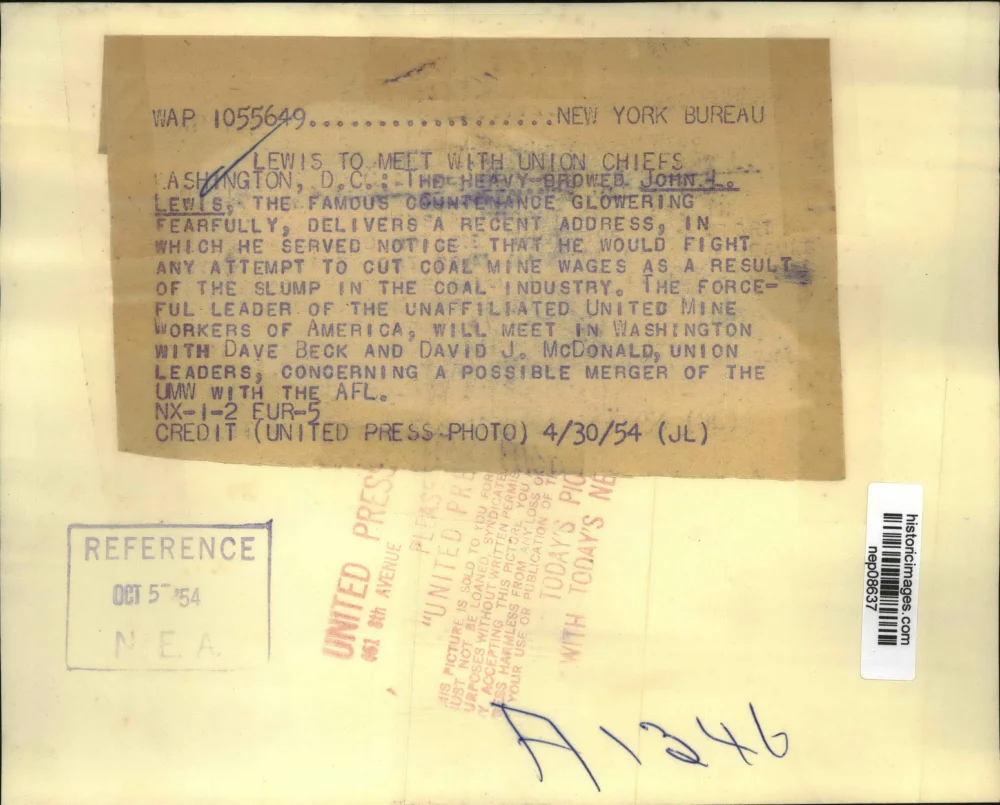 WAP 1055649...................NEW YORK BUREAU
LEWIS TO MEET WITH UNION CHIEFS
WASHINGTON, D.C.: THE HEAVY-BROWED JOHN L.
LEWIS, THE FAMOUS COUNTENANCE GLOWERING
FEARFULLY, DELIVERS A RECENT ADDRESS, IN
WHICH HE SERVED NOTICE THAT HE WOULD FIGHT
ANY ATTEMPT TO CUT COAL MINE WAGES AS A RESULT
OF THE SLUMP IN THE COAL INDUSTRY. THE FORCE-
FUL LEADER OF THE UNAFFILIATED UNITED MINE
WORKERS OF AMERICA, WILL MEET IN WASHINGTON
WITH DAVE BECK AND DAVID J. MCDONALD, UNION
LEADERS, CONCERNING A POSSIBLE MERGER OF THE
UMW WITH THE AFL.
NX-1-2 EUR-5
CREDIT (UNITED PRESS PHOTO) 4/30/54 (JL)
REFERENCE
OCT 5 '54
N. E. A.
UNITED PRESS
461 8th AVENUE
PLEASE
"UNITED PRE
HIS PICTURE IS SOLD TO YOU FOR
UST NOT BE LOANED, SYNDICATE
URPOSES WITHOUT WRITTEN PERMIS
Y ACCEPTING THIS PICTURE YOU
SS HARMLESS FROM ANY LOSS O
YOUR USE OR PUBLICATION OF T
TODAY'S PIC
WITH TODAY'S NE
historicimages.com
nep08637
A1346